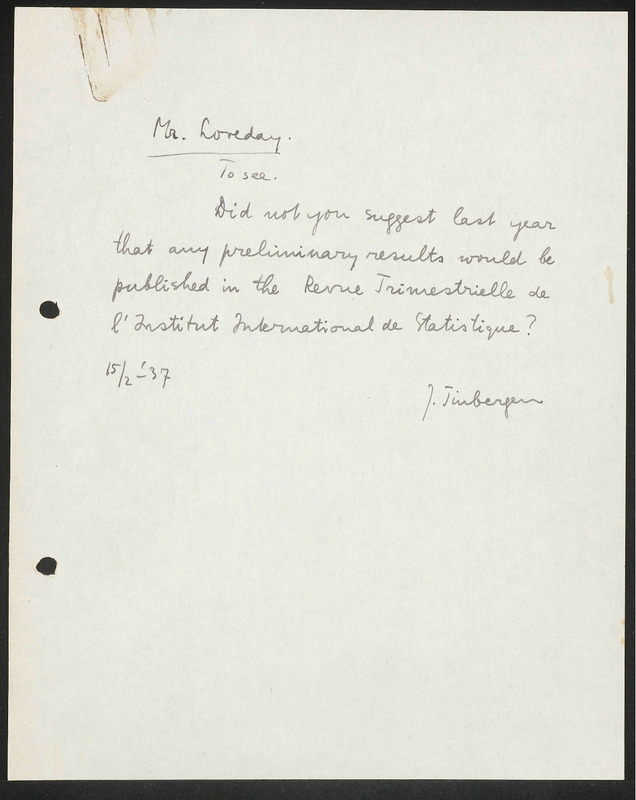 Mr. Loveday.
To see.
Did not you suggest last year
that any preliminary results would be
published in the Revue Trimestrielle de
l'Institut International de Statistique?
15/2 '-37
J. Tinbergen